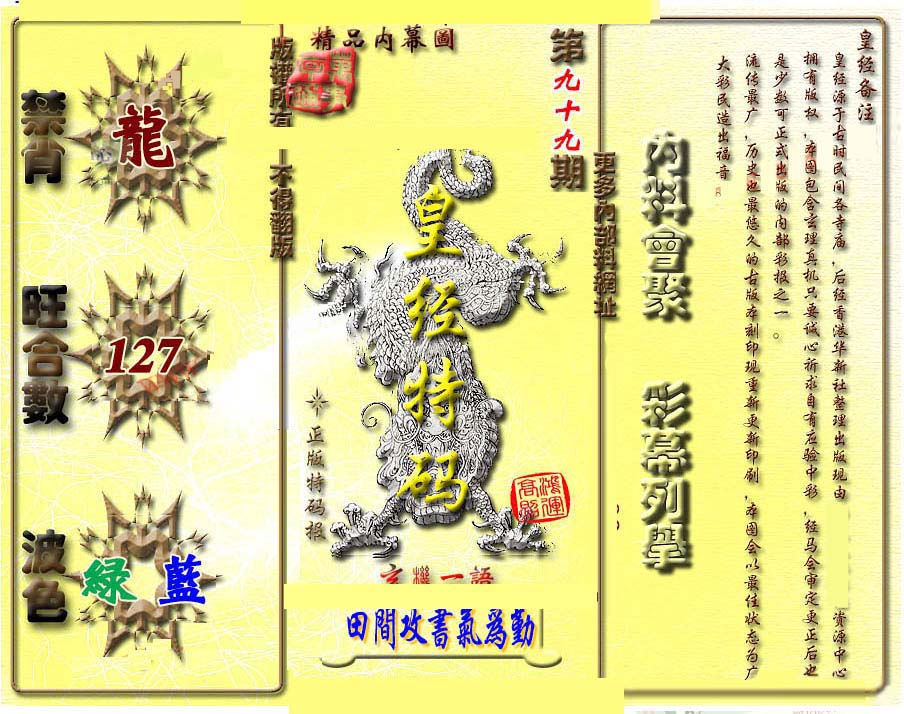 皇经备注
皇经源于古时民间各寺庙，后经香港华新社整理出版现由 资源中心
拥有版权，本图包含玄理真机只要诚心祈求自有应验中彩，经马会审定更正后也
是少数可正式出版的内部彩报之一。
流传最广，历史也最悠久的古版本刻印现重新更新印刷，本图会以最佳状态为广
大彩民造出福音
內料會聚
彩幕列舉
更多內部料網址
第九十九期
精品内幕圖
版權所有
不得翻版
皇经特码
正版特码报
鴻運
高照
玄機一語
田間攻書氣為勤
禁肖
龍
旺合數
127
波色
綠 藍